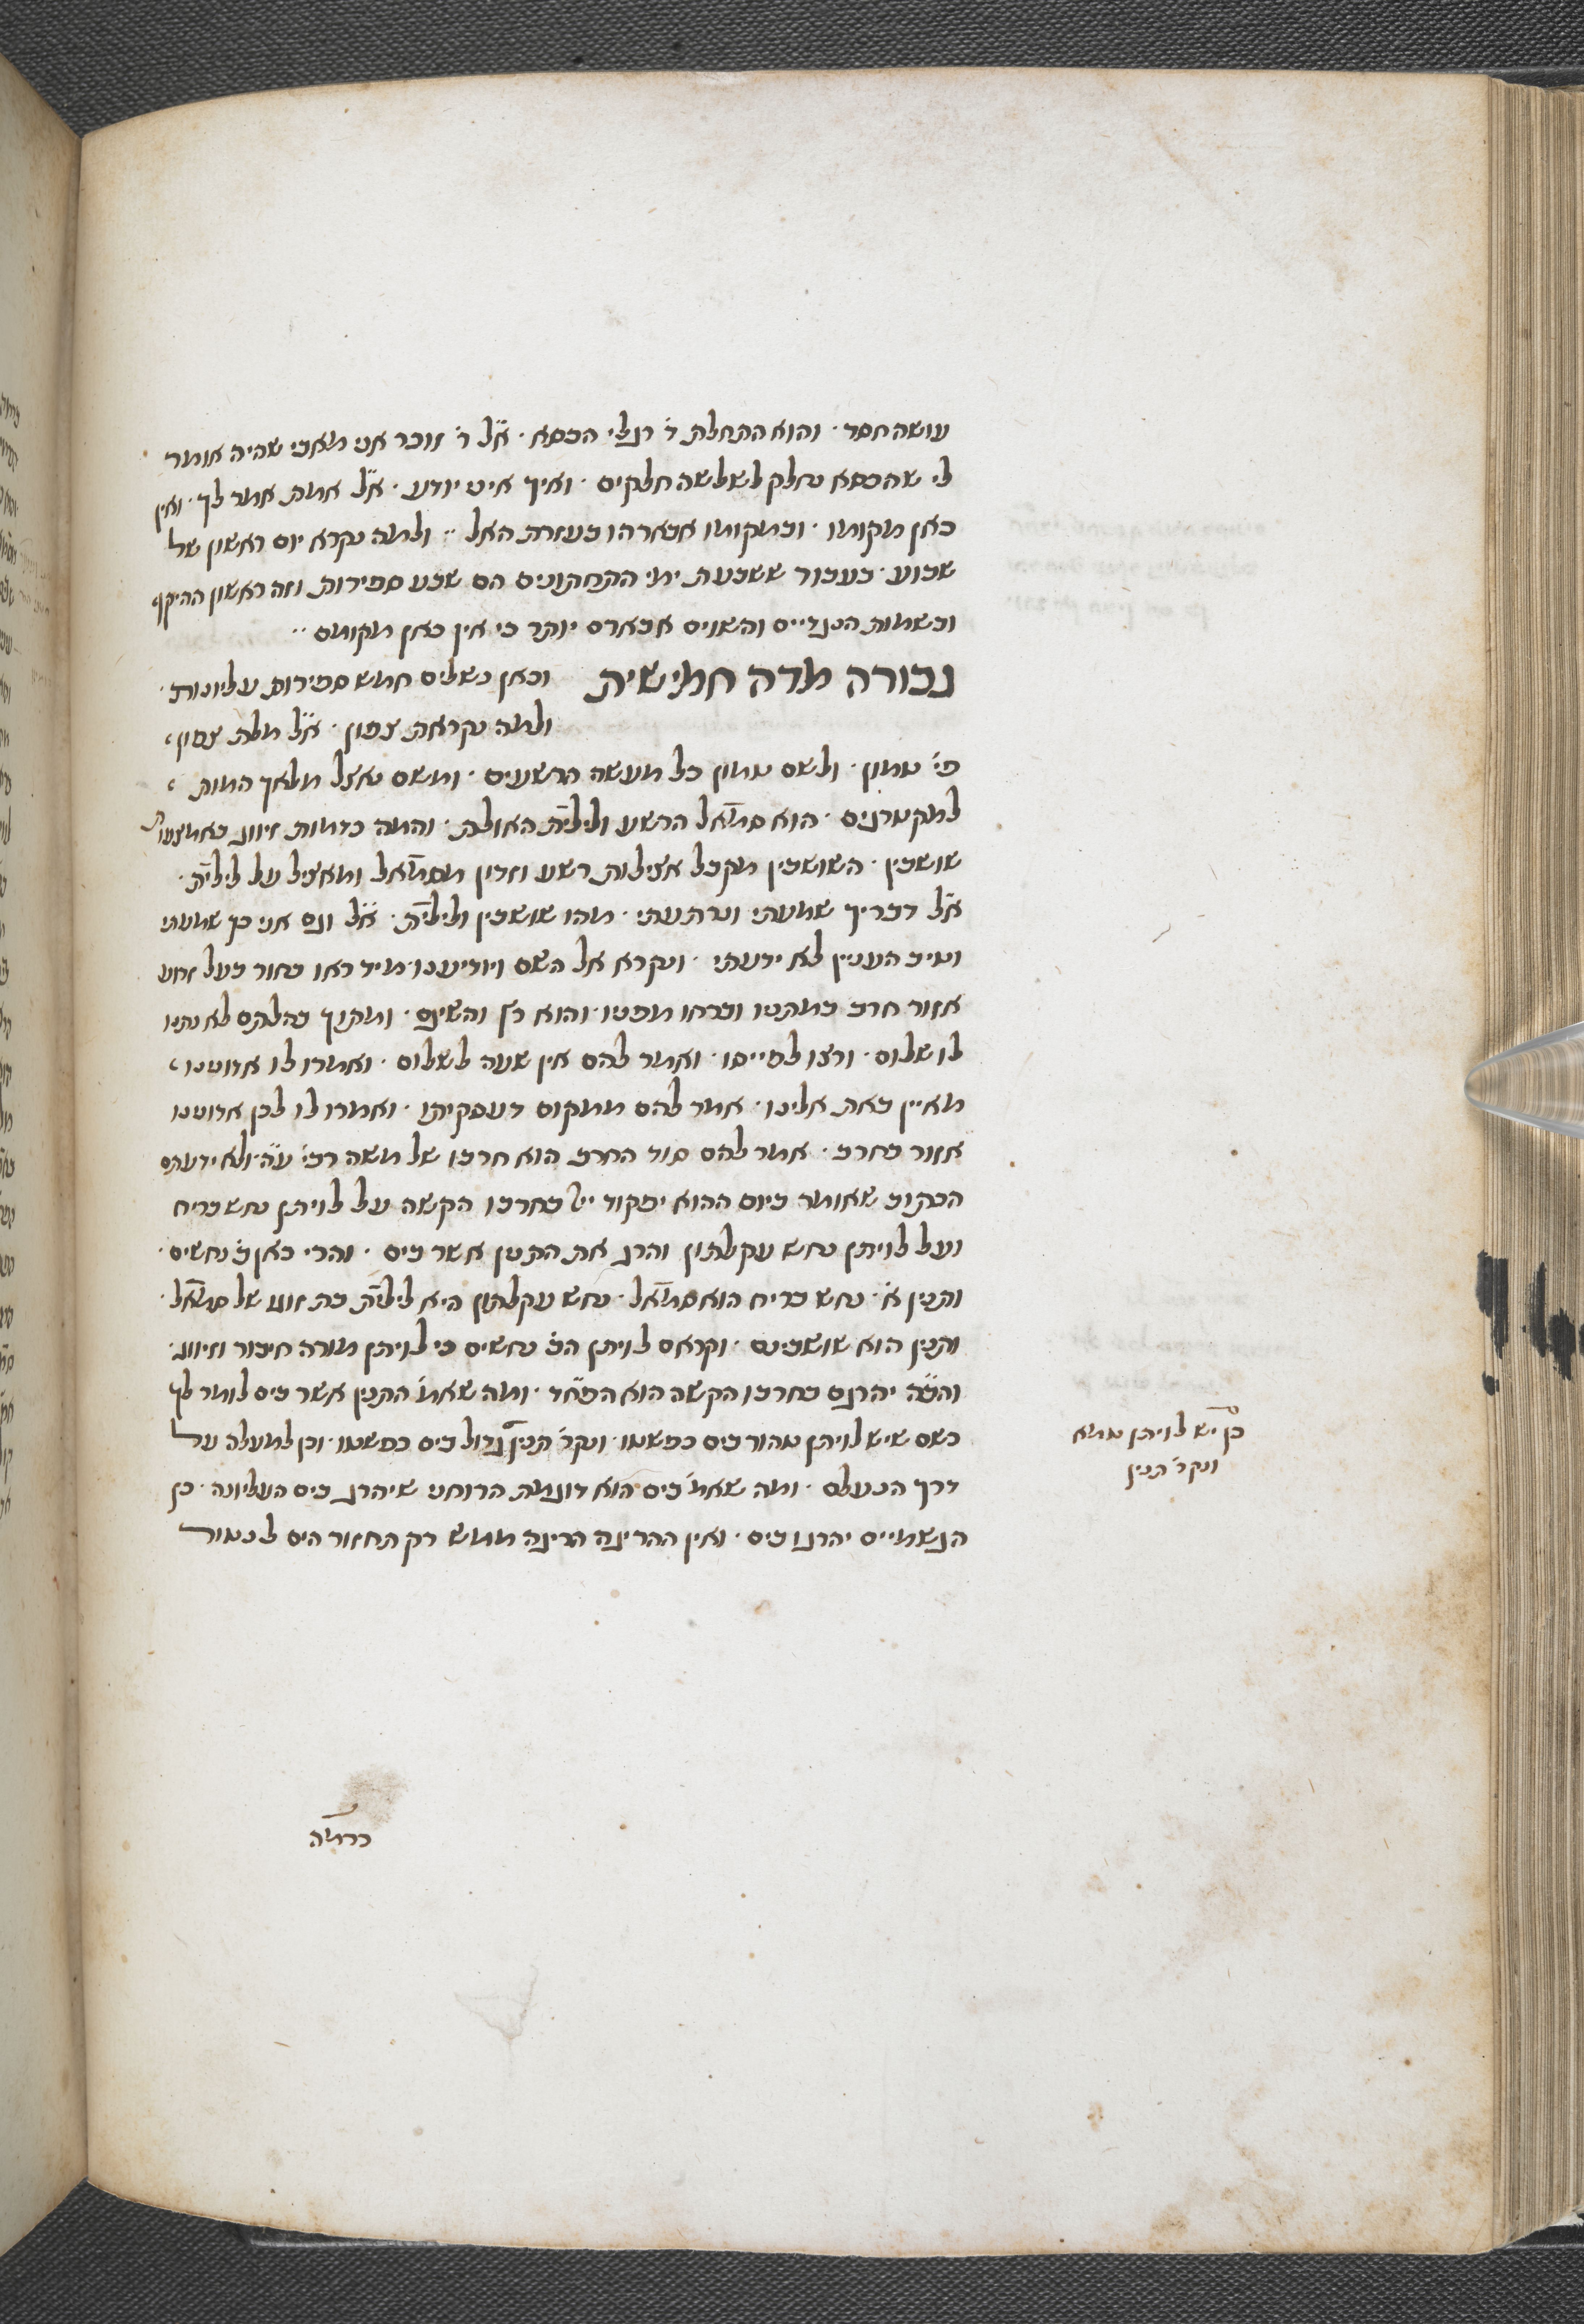 עושה חסד · והוא התחלת ד׳ רגלי הכסא · א״ל ר׳ זוכר אני מאבי שהיה אומר
לי שהכסא נחלק לשלשה חלקים · ואיך איני יודע · א״ל אמת אמר לך · ואין
כאן מקומו · ובמקומו אבארהו בעזרת האל ·· ולמה נקרא יום ראשון של
שבוע · בעבור ששבעת ימי התחתונים הם שבע ספירות וזה ראשון ההיקף
ובשמות הנגדיים והשוים אבארם יותר כי אין כאן מקומם ··
גבורה מדה חמישית וכאן נשלים חמש ספירות עליונות ·
ולמה נקראת צפון · א״ל מלת צפון
פי׳ טמון · ולשם טמון כל מעשה הרשעים · ומשם נאצל מלאך המות
למקטרגים · הוא סמאל הרשע ולילית האולת · והמה בדמות זיווג באמצעות
שושבין · השושבין מקבל אצילות רשע וזדון מסמאל ומאציל על לילית ·
א״ל דבריך שמעתי ונרתעתי · מהו שושבין ולילית · א״ל וגם אני כך שמעתי
וטיב הענין לא ידעתי · ונקרא אל השם ויודיענו · מיד ראו בחור בעל זרוע
אזור חרב במתניו וברחו מפניו · והוא רץ והשיגם · ומתוך בהלתם לא נתנו
לו שלום · ורצו לפייסו · ואמר להם אין שעה לשלום · ואמרו לו אדוננו
מאיין באת אלינו · אמר להם ממקום דעסקיתו · ואמרו לו לכן אדוננו
אזור בחרב · אמר להם סוד החרב הוא חרבו של משה רבי׳ ע״ה · ולא ידעתם
הכתוב שאומר ביום ההוא יפקוד יי׳ בחרבו הקשה על לויתן נחש בריח
ועל לויתן נחש עקלתון והרג את התנין אשר בים · והרי כאן ב׳ נחשים ·
ותנין א׳ · נחש בריח הוא סמאל · נחש עקלתון היא לילית בת זוגו של סמאל ·
ותנין הוא שושבינם · וקראם לויתן הב׳ נחשים כי לויתן מורה חיבור וזיווג ·
והב״ה יהרגם בחרבו הקשה הוא הפחד · ומה שאמ׳ התנין אשר בים לומר לך
כשם שיש לויתן טהור בים כפשטו · ונקר׳ תנין גדול בים כפשטו · וכן למעלה על
דרך הנעלם · ומה שאמ׳ בים הוא דוגמת הרוחני שיהרג בים העליונה · כן
הגשמיים יהרגו בים · ואין ההריגה הריגה ממש רק תחזור הים לנטור
כן יש לויתן טמא
ונקר׳ תנין
כדמה